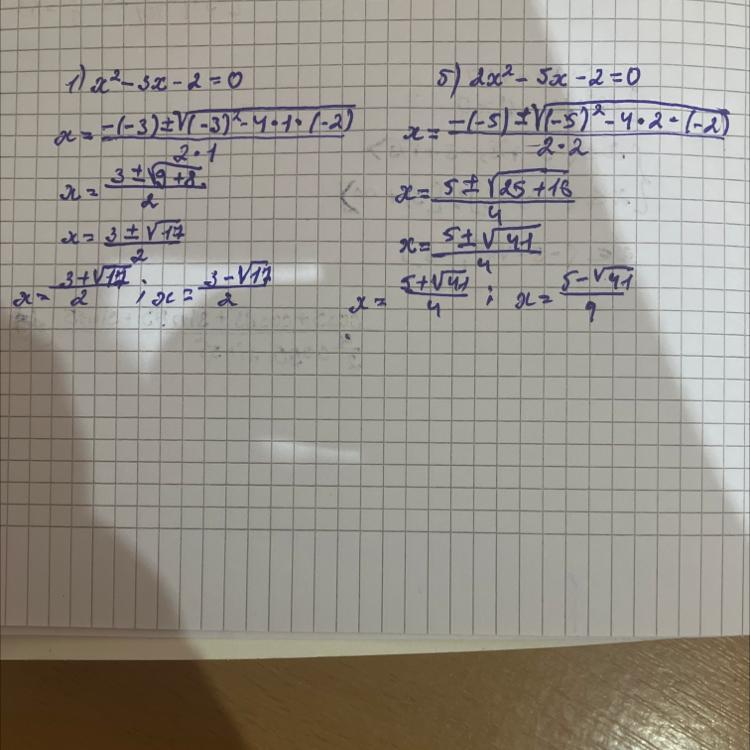 1) x² - 3x - 2 = 0
x = -(-3) ± √(-3)² - 4 · 1 · (-2) / 2 · 1
x = 3 ± √9 + 8 / 2
x = 3 ± √17 / 2
x = 3 + √17 / 2 ; x = 3 - √17 / 2
5) 2x² - 5x - 2 = 0
x = -(-5) ± √(-5)² - 4 · 2 · (-2) / 2 · 2
x = 5 ± √25 + 16 / 4
x = 5 ± √41 / 4
x = 5 + √41 / 4 ; x = 5 - √41 / 9